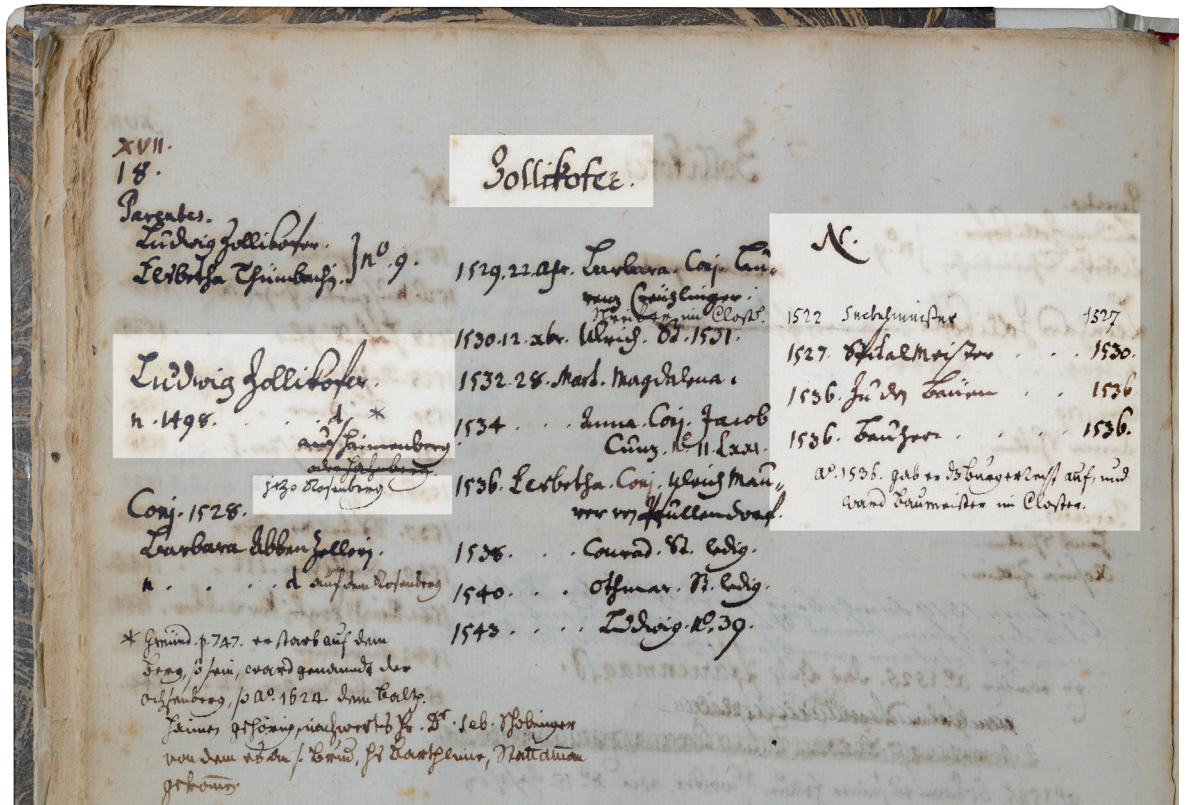 XVII.
18.
Zollikofer.
Parentes.
Ludwig Zollikofer.
Lisbetha Thumbachin. } nº. 9.
Ludwig Zollikofer.
n. 1498. . . . d. *
auf Hainenberg
oder
jezo Rosenberg
Conj. 1528.
Barbara Abbenzellerj.
n . . . . d auf dem Rosenberg
* p. 747. er starb auf dem
berg, so sein, ward genanndt der
ochsenberg, so Aº. 1624. dem Balth.
gehörig, nachwerts Hr. Dr. Seb. Schobinger
von dem es an s. Brud, Hr Barthlime, Stattaman
gekomen.
1529. 22. Apr. Barbara. Conj. Lau-
renz Creüzlinger.
im Closter
1530. 12. xbr. Ulrich. St. 1531.
1532. 28. Mart. Magdalena.
1534 . . . Anna. Conj. Jacob
Cunz. Nº II.
1536. Lisbetha. Conj. Ulrich Mau-
rer von Pfullendorf.
1538. . . . Conrad. St. ledig.
1540. . . . Othmar. St. ledig.
1543. . . . Ludwig. Nº. 39.
N.
1522 Sechsminister 1527
1527. SpitalMeister . . . 1530.
1536. Zu den Bäuen . . . 1536
1536. Bauherr . . . . 1536.
Aº. 1536. gab er dz burgerrecht auf, und
ward Baumeister im Closter.